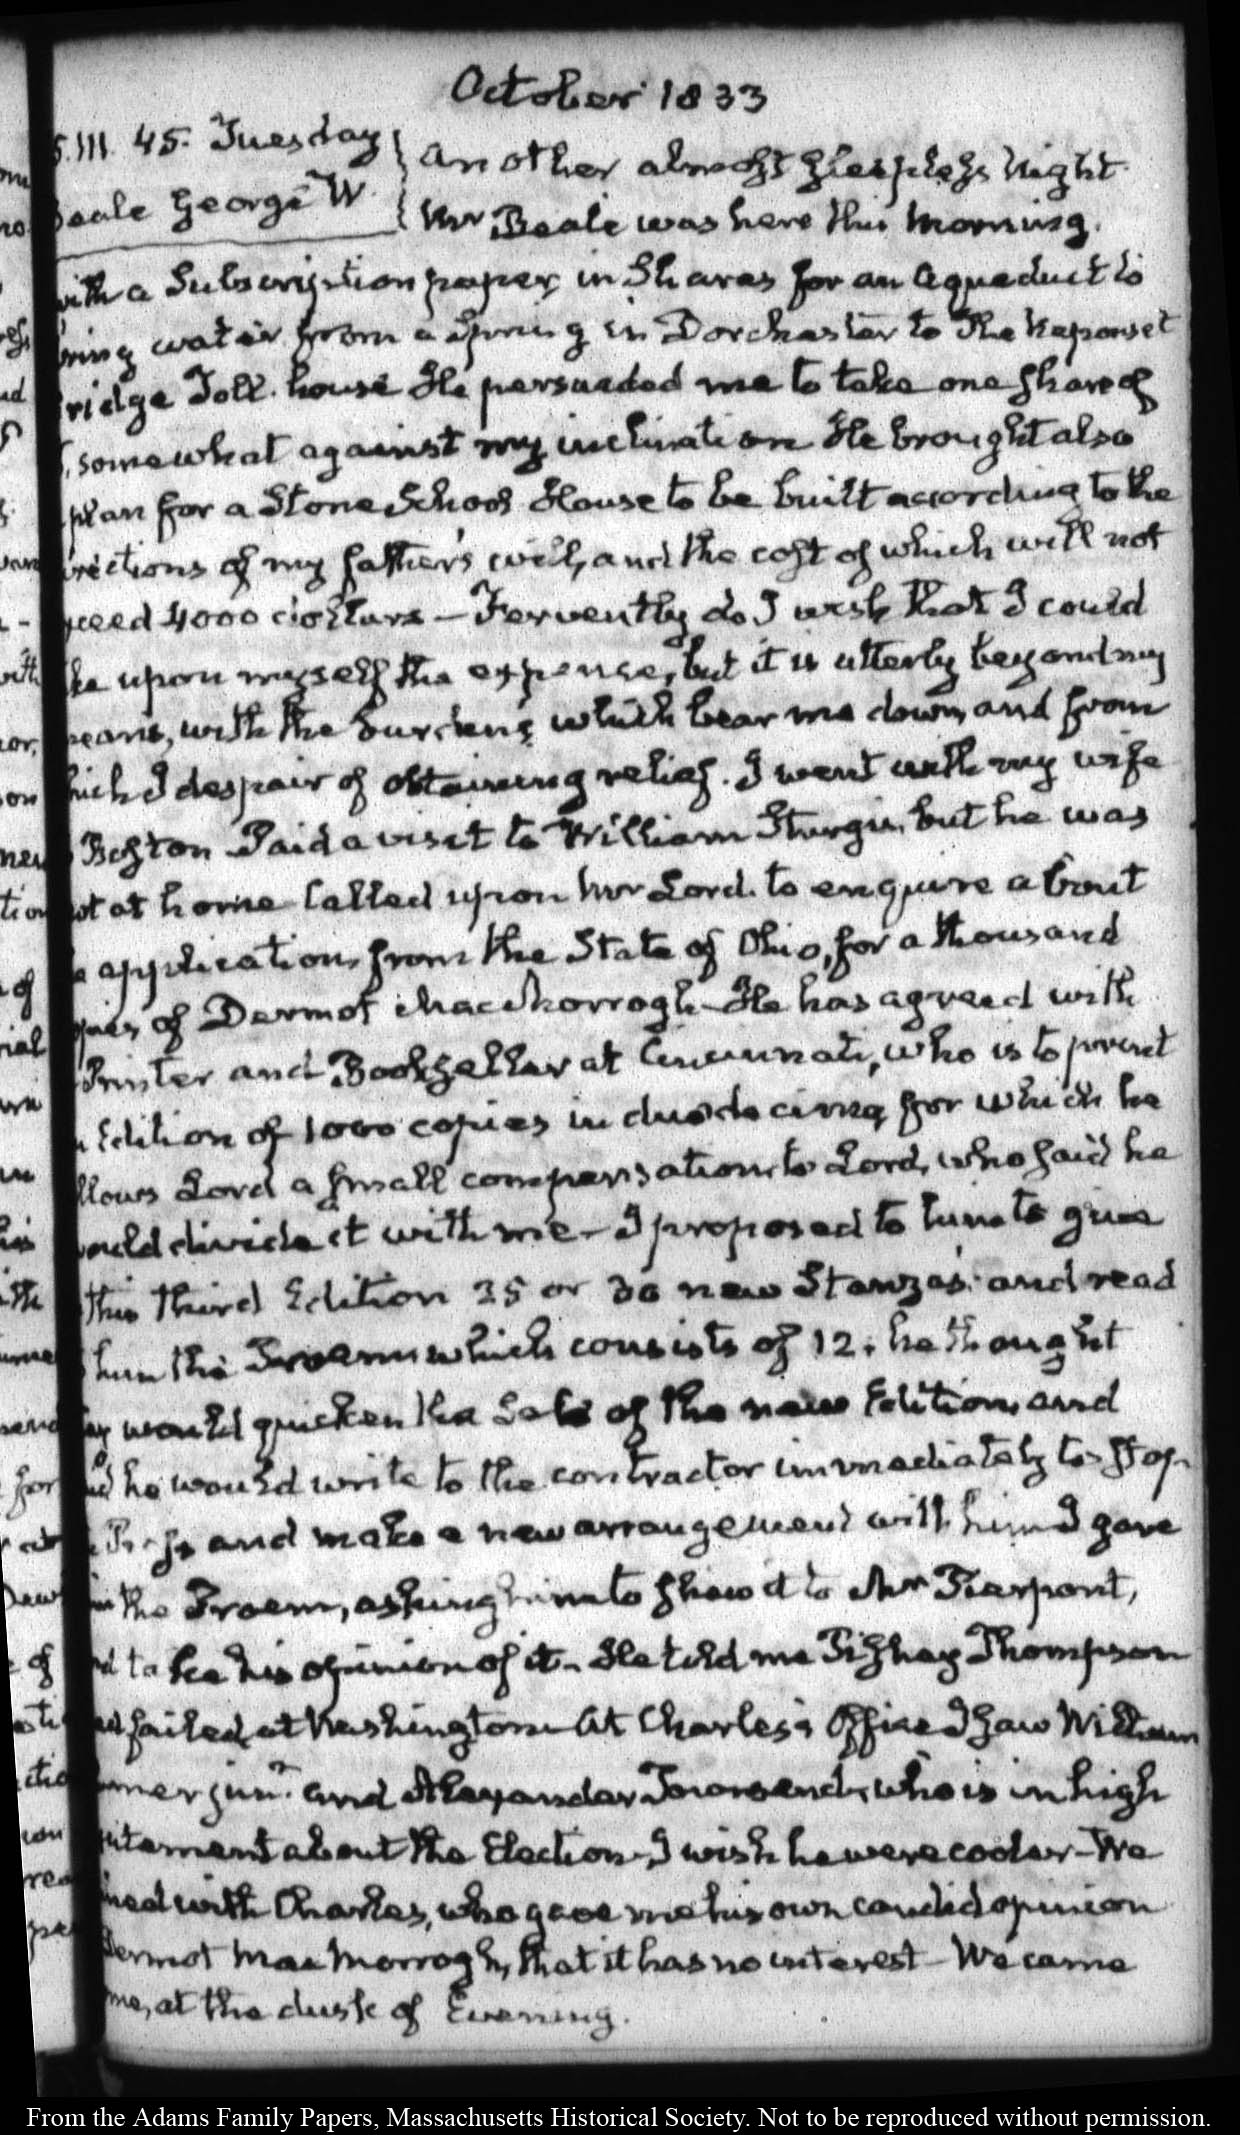 October 1833
5. III. 45. Tuesday
eale George W.
Another almost sleepless Night
Mr Beale was here this Morning.
with a Subscription paper, in Shares for an Aqueduct to
ring water from a Spring in Dorchester to the Neponset
ridge Toll-house He persuaded me to take one share of
, somewhat against my inclination He brought also
plan for a Stone School House to be built according to the
irections of my father's will, and the cost of which will not
xceed 4000 dollars — Fervently do I wish that I could
ke upon myself the expense, but it is utterly beyond my
means, with the burdens which bear me down, and from
hich I despair of obtaining relief. I went with my wife
Boston Paid a visit to William Sturgis, but he was
ot at home Called upon Mr Lord to enquire about
application, from the State of Ohio, for a thousand
opies of Dermot MacMorrogh — He has agreed with
Printer and Bookseller at Cincinnati, who is to print
Edition of 1000 copies in duodecimo, for which he
llows Lord a small compensation to Lord, who said he
ould divide it with me — I proposed to him to give
this third Edition 25 or 30 new Stanza's: and read
him the Proem which consists of 12. he thought
they would quicken the Sale of the new Edition, and
id he would write to the contractor immediately to stop
Press and make a new arrangement with him I gave
him the Proem, asking him to show it to Mr Pierpont,
nd take his opinion of it — He told me Pishey Thompson
had failed, at Washington — At Charles's Office I saw William
mer junr. and Alexander Townsend, who is in high
citement about the Election — I wish he were cooler — We
ined with Charles, who gave me his own candid opinion
Dermot MacMorrogh, that it has no interest — We came
me, at the dusk of Evening.
From the Adams Family Papers, Massachusetts Historical Society. Not to be reproduced without permission.